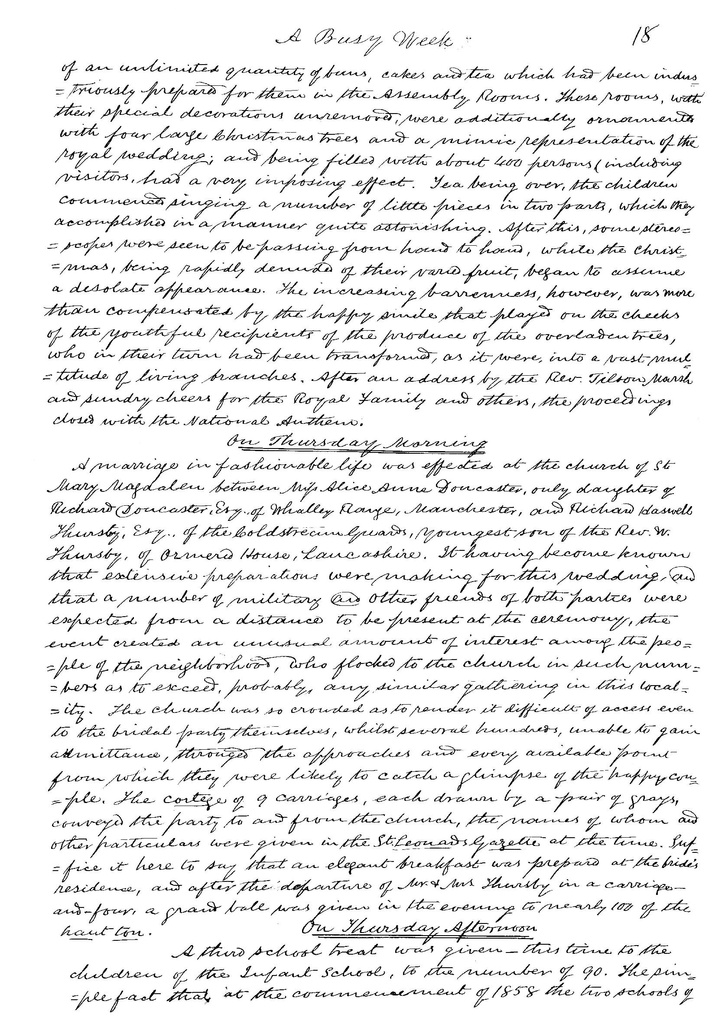 A Busy Week
18
of an unlimited quantity of buns, cakes and tea which had been indus
=triously prepared for them in the Assembly Rooms. These rooms, with
their special decorations unremoved, were additionally ornamented
with four large Christmas trees and a mimic representation of the
royal wedding; and being filled with about 400 persons (including
visitors, had a very imposing effect. Tea being over, the children
commenced singing a number of little pieces in two parts, which they
accomplished in a manner quite astonishing. After this, some stereo=
=scopes were seen to be passing from hand to hand, while the Christ=
=mas, being rapidly denuded of their varied fruit, began to assume
a desolate appearance. The increasing barrenness, however, was more
than compensated by the happy smile that played on the cheeks
of the youthful recipients of the produce of the overladen trees,
who in their turn had been transformed, as it were, into a vast mul
=titude of living branches. After an address by the Rev. Tilson Marsh
and sundry cheers for the Royal Family and others, the proceedings
closed with the National Anthem.
On Thursday Morning
A marriage in fashionable life was effected at the church of St
Mary Magdalen between Miss Alice Anne Doncaster, only daughter of
Richard Doncaster, Esq. of Whalley Range, Manchester, and Richard Haswell
Thursby, Esq., of the Coldstream Guards, youngest son of the Rev. W.
Thursby, of Ormerd House, Lancashire. It having become known
that extensive preparations were making for this wedding, and
that a number of military and other friends of both parties were
expected from a distance to be present at the ceremony, the
event created an unusual amount of interest among the peo=
=ple of the neighborhood, who flocked to the church in such num=
=bers as to exceed, probably, any similar gathering in this local=
=ity. The church was so crowded as to render it difficult of access even
to the bridal party themselves, whilst several hundreds, unable to gain
admittance, thronged the approaches and every available point
from which they were likely to catch a glimpse of the happy cou=
=ple. The cortége of 9 carriages, each drawn by a pair of grays,
conveyed the party to and from the church, the names of whom and
other particulars were given in the St Leonards Gazette at the time. Suf=
=fice it here to say that an elegant breakfast was prepared at the bride's
residence, and after the departure of Mr. & Mrs Thursby in a carriage-
and-four, a grand ball was given in the evening to nearly 100 of the
haut ton.
On Thursday Afternoon
A third school treat was given — this time to the
children of the Infant School, to the number of 90. The sim=
=ple fact that, at the commencement of 1858 the two schools of